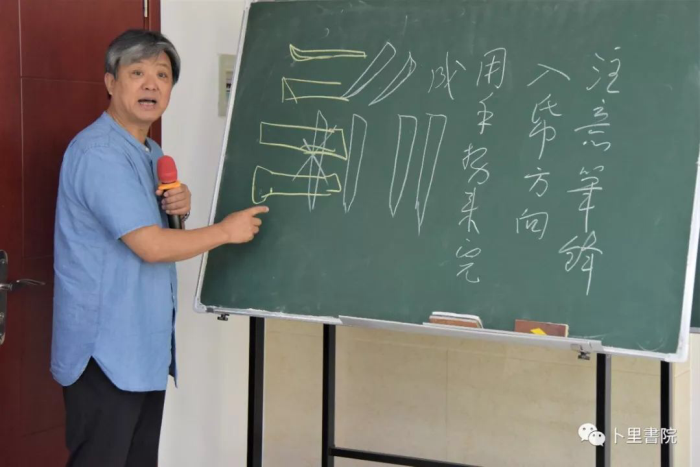 注意筆锋
入帋方向
用手势来完
成
卜里書院